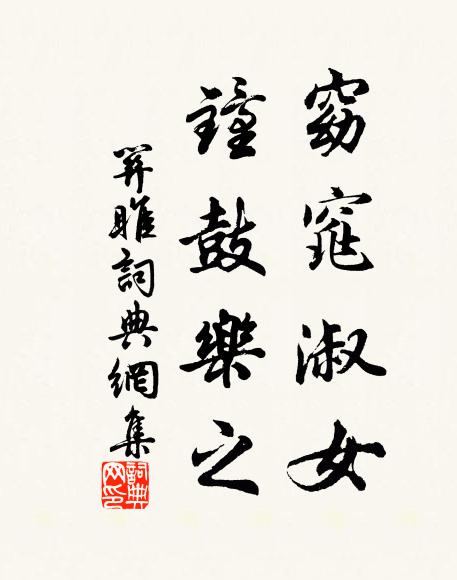 窈窕淑女
鐘鼓樂之
関雎詞典網集
詞典网印